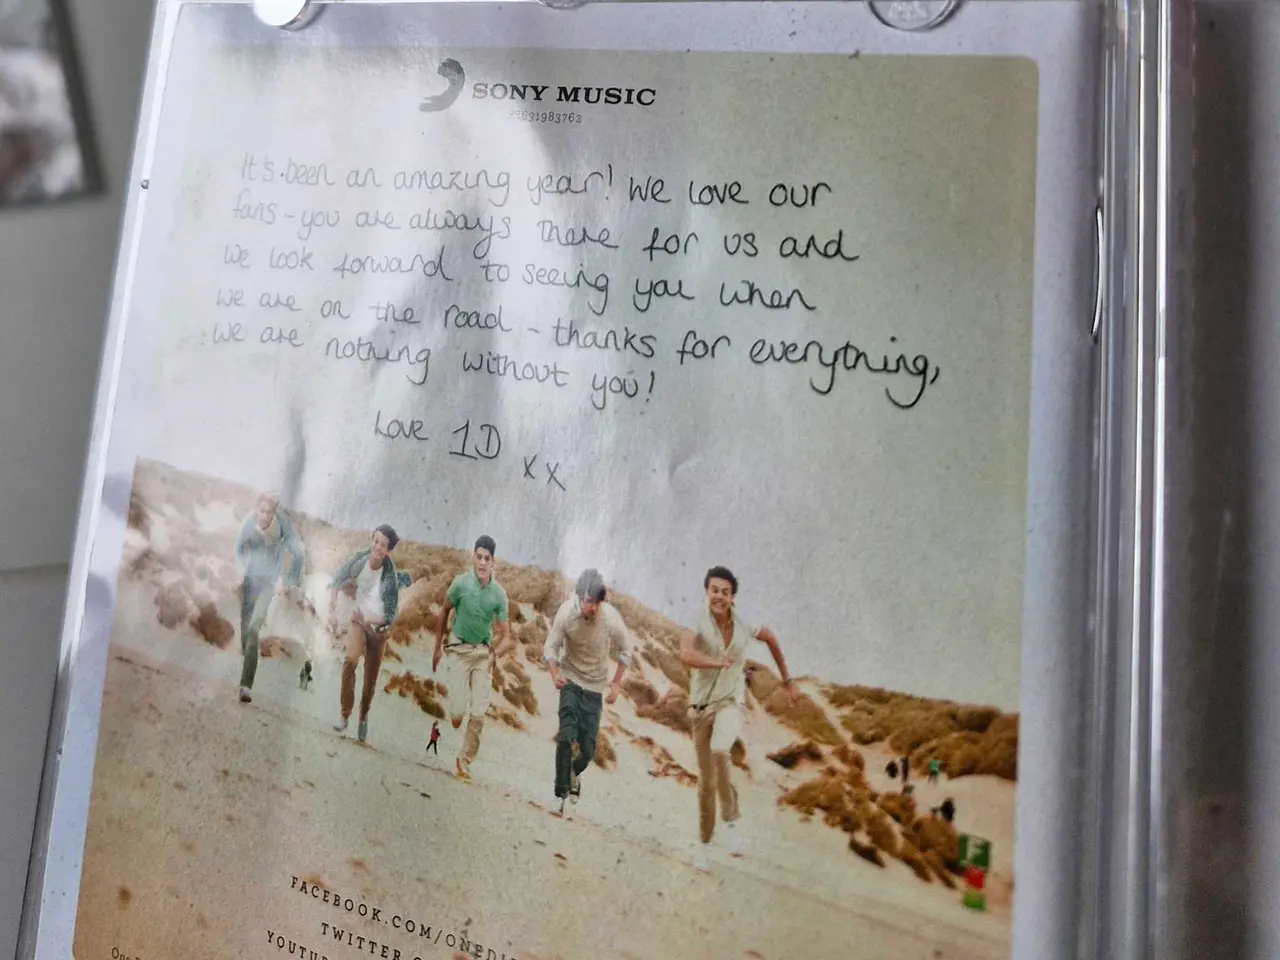 SONY MUSIC
It's been an amazing year! We love our
fans - you are always there for us and
we look forward to seeing you when
we are on the road - thanks for everything,
we are nothing without you!
Love 1D xx
FACEBOOK.COM/
TWITTER